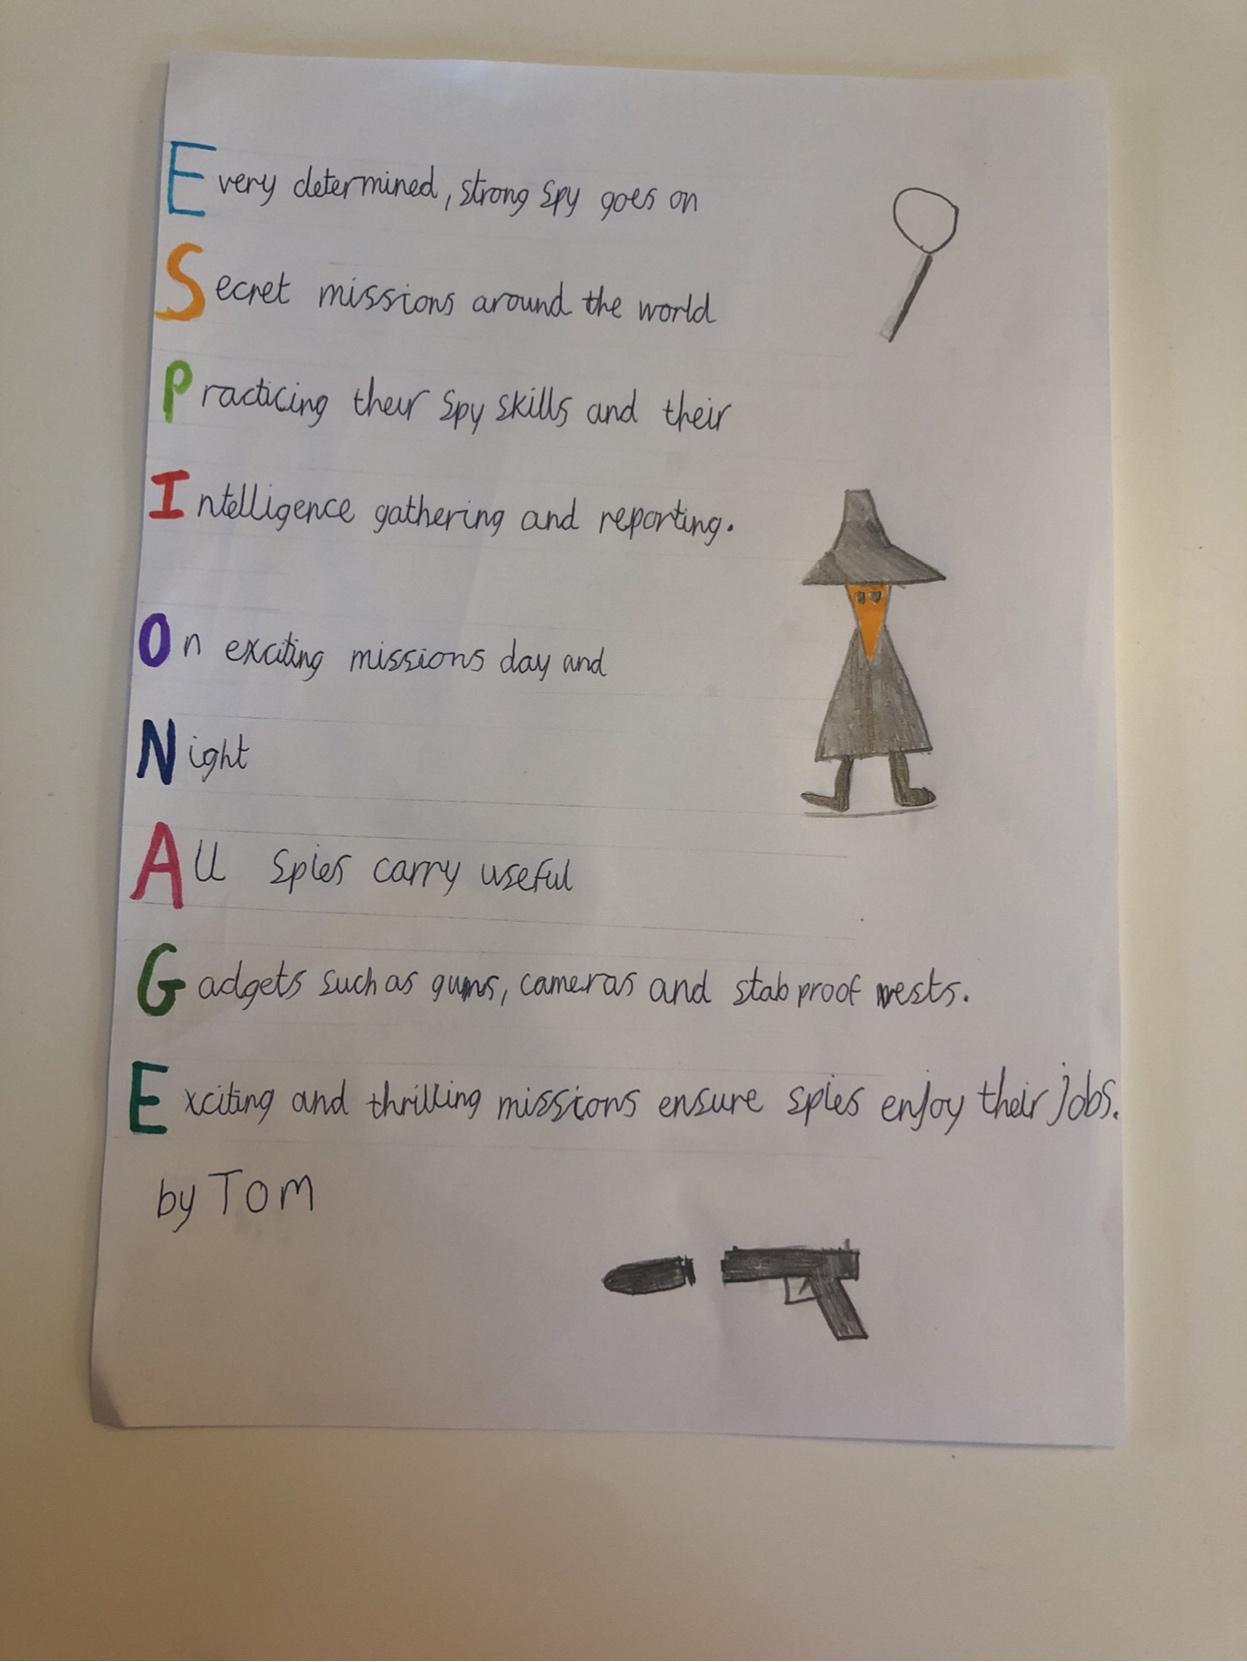 Every determined, strong spy goes on
Secret missions around the world
Practicing their spy skills and their
Intelligence gathering and reporting.
On exciting missions day and
Night
All spies carry useful
Gadgets such as guns, cameras and stab proof vests.
Exciting and thrilling missions ensure spies enjoy their jobs.
by Tom